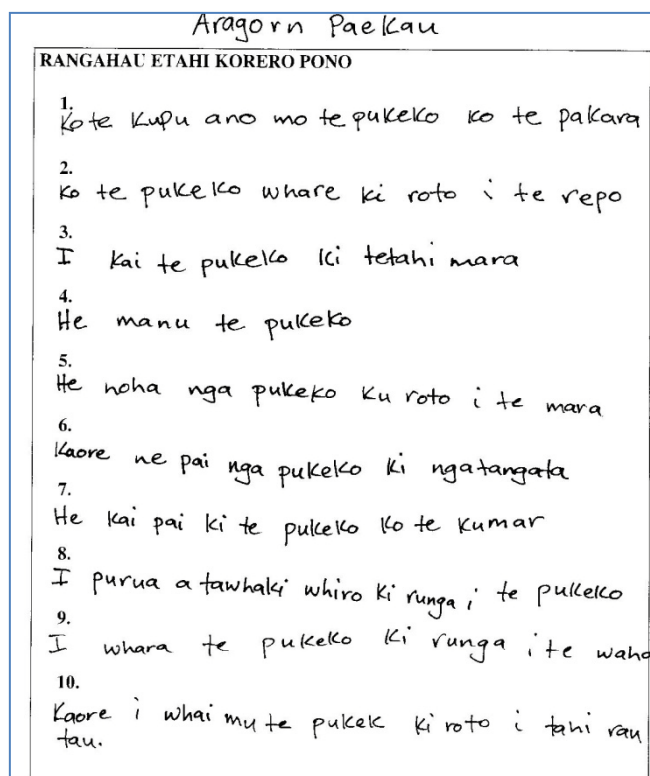 Aragorn Paekau
RANGAHAU ETAHI KORERO PONO
1.
Ko te kupu ano mo te pukeko ko te pakara
2.
Ko te pukeko whare ki roto i te repo
3.
I kai te pukeko ki tetahi mara
4.
He manu te pukeko
5.
He noha nga pukeko ku roto i te mara
6.
Kaore ne pai nga pukeko ki nga tangata
7.
He kai pai ki te pukeko ko te kumar
8.
I purua a tawhaki whiro ki runga i te pukeko
9.
I whara te pukeko ki runga i te waho
10.
Kaore i whai mu te pukek ki roto i tahi rau
tau.